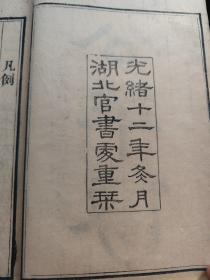 光緒十二年冬月
湖北官書處重栞
凡例